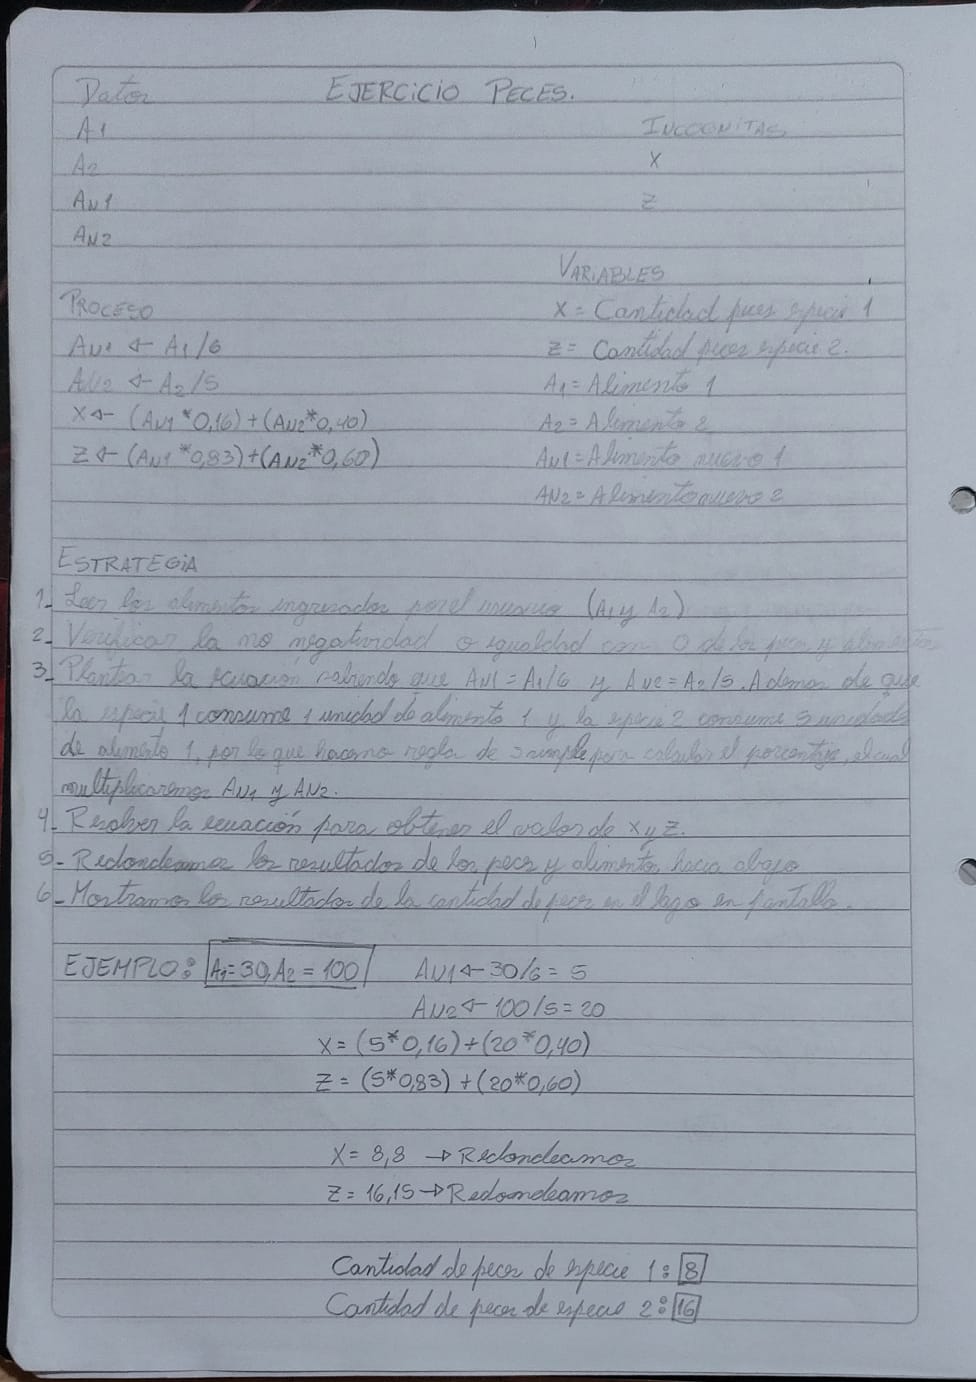 Datos EJERCICIO PECES.
A1 INCOGNITAS
A2 X
AN1 Z
AN2
VARIABLES
PROCESO X = Cantidad peces especie 1
AN1 ← A1/6 Z = Cantidad peces especie 2.
AN2 ← A2/5 A1 = Alimento 1
X ← (AN1*0,16)+(AN2*0,40) A2 = Alimento 2
Z ← (AN1*0,83)+(AN2*0,60) AN1 = Alimento nuevo 1
AN2 = Alimento nuevo 2
ESTRATEGIA
1- Leer los alimentos ingresados por el usuario (A1 y A2)
2- Verificar la no negatividad o igualdad con 0 de los peces y alimentos
3- Plantear la ecuación sabiendo que AN1 = A1/6 y AN2 = A2/5. Ademas de que
la especie 1 consume 1 unidad de alimento 1 y la especie 2 consume 5 unidades
de alimento 1, por lo que hacemo regla de 3 simple para calcular el porcentaje, el cual
multiplicaremos AN1 y AN2.
4- Resolver la ecuación para obtener el valor de x y z.
5- Redondeamos los resultados de los peces y alimentos hacia abajo
6- Mostramos los resultados de la cantidad de peces en el lago en pantalla.
EJEMPLO: A1=30, A2=100 AN1 ← 30/6 = 5
AN2 ← 100/5 = 20
X = (5*0,16)+(20*0,40)
Z = (5*0,83)+(20*0,60)
X = 8,8 → Redondeamos
Z = 16,15 → Redondeamos
Cantidad de peces de especie 1: 8
Cantidad de peces de especie 2: 16